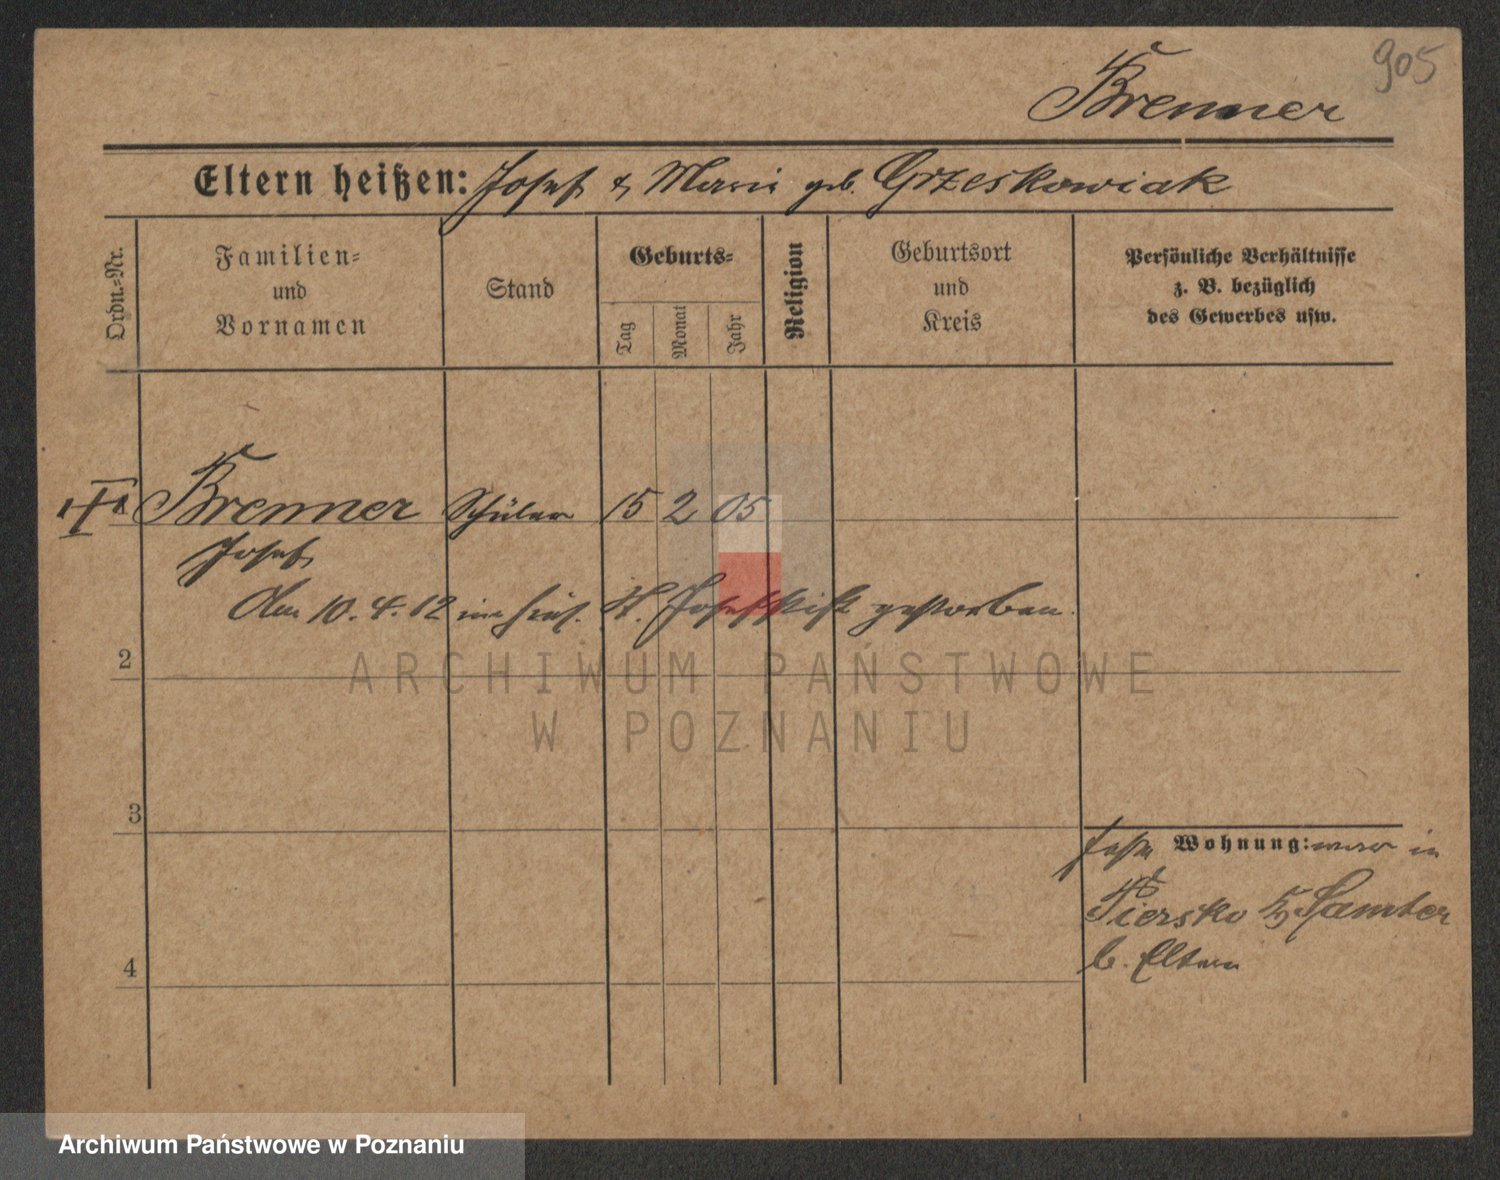 905
Brenner
Eltern heißen: Josef & Marie geb. Grzeskowiak
Ordn.-Nr.
Familien-
und
Vornamen
Stand
Geburts-
Tag
Monat
Jahr
Religion
Geburtsort
und
Kreis
Persönliche Verhältnisse
z. B. bezüglich
des Gewerbes usw.
Brenner Schüler 15 2 05
Josef
Am 10.4.12 im hies. St. Josefstift gestorben.
2
ARCHIWUM PAŃSTWOWE
W POZNANIU
3
Wohnung: in
Piersko Samter
b. Eltern
4
Archiwum Państwowe w Poznaniu